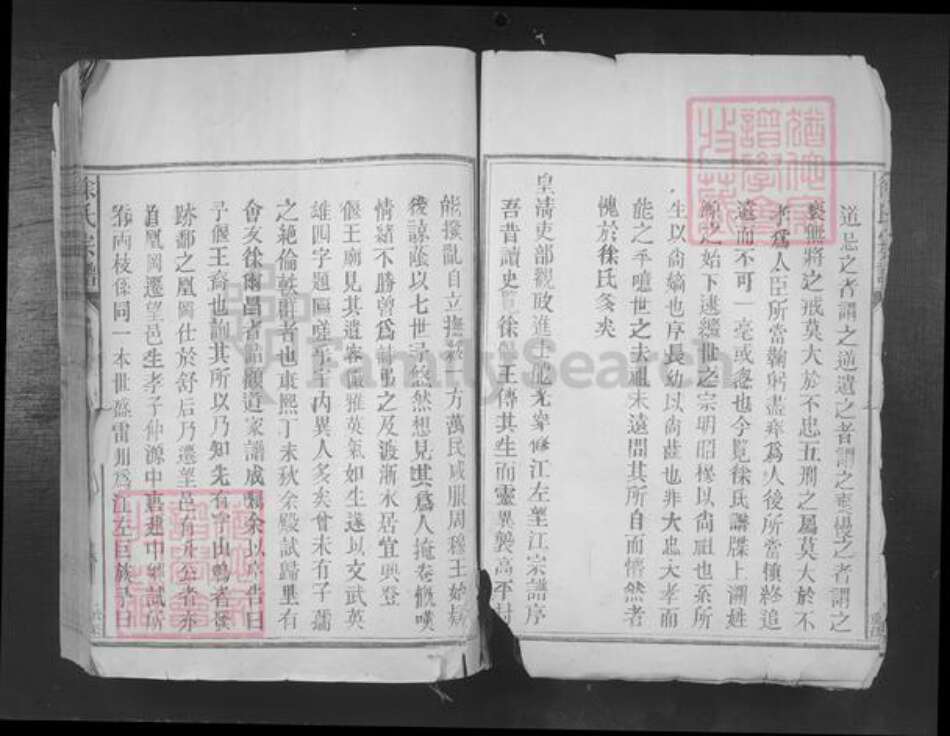 道忌之者謂之逆遺之者謂之棄擾之者謂之
褻無將之戒莫大於不忠五刑之屬莫大於不
孝爲人臣所當鞠躬盡瘁爲人後所當慎終追
遠而不可一毫或忽也今覽徐氏譜牒上溯姓
源之始下逮繼世之宗明昭穆以尚祖也系所
生以尚嫡也序長幼以尚齒也非大忠大孝而
能之乎噫世之去祖未遠問其所自而懵然者
愧於徐氏多矣
皇清吏部觀政進士 修江左望江宗譜序
吾昔讀史 徐偃王傳其生而靈異襲高平封
能撥亂自立撫 一方萬民咸服周穆王始疑
後諒 以七世 悠然想見其爲人掩卷慨嘆
情緒不勝曾爲 之及渡浙水居宜興登
偃王廟見其遺容儼雅英氣如生遂以文武英
雄四字題匾嗟乎宇內異人多矣曾未有子孺
之絕倫 者也康熙丁未秋余殿試歸里有
會友徐爾昌者 顧道家譜成囑余以序告曰
予偃王裔也詢其所以乃知先有字山 者發
跡鄱之凰岡仕於舒后乃遷望邑有 公者亦
自凰岡遷望邑生孝子仲源中 建中 試所
稱兩枝係同一本世盛雷州爲江左巨族予曰
徐氏宗譜
FamilySearch